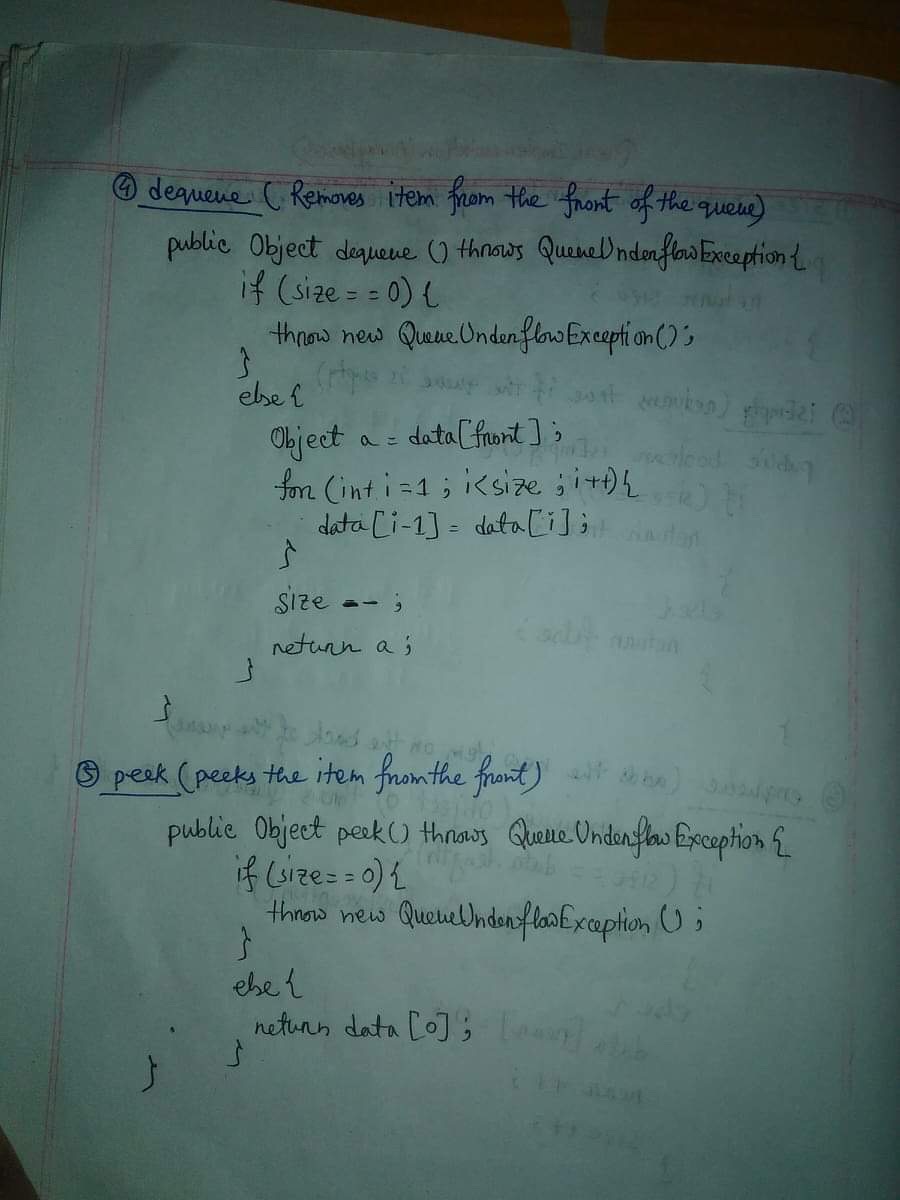 ④ dequeue ( Removes item from the front of the queue)
public Object dequeue () throws QueueUnderflowException {
if (size = = 0) {
throw new QueueUnderflowException();
}
else {
Object a = data[front] ;
for (int i = 1 ; i<size ; i++) {
data [i-1] = data [i] ;
}
size -- ;
return a ;
}
}
⑤ peek (peeks the item from the front)
public Object peek () throws QueueUnderflowException {
if (size = = 0) {
throw new QueueUnderflowException () ;
}
else {
return data [0] ;
}
}